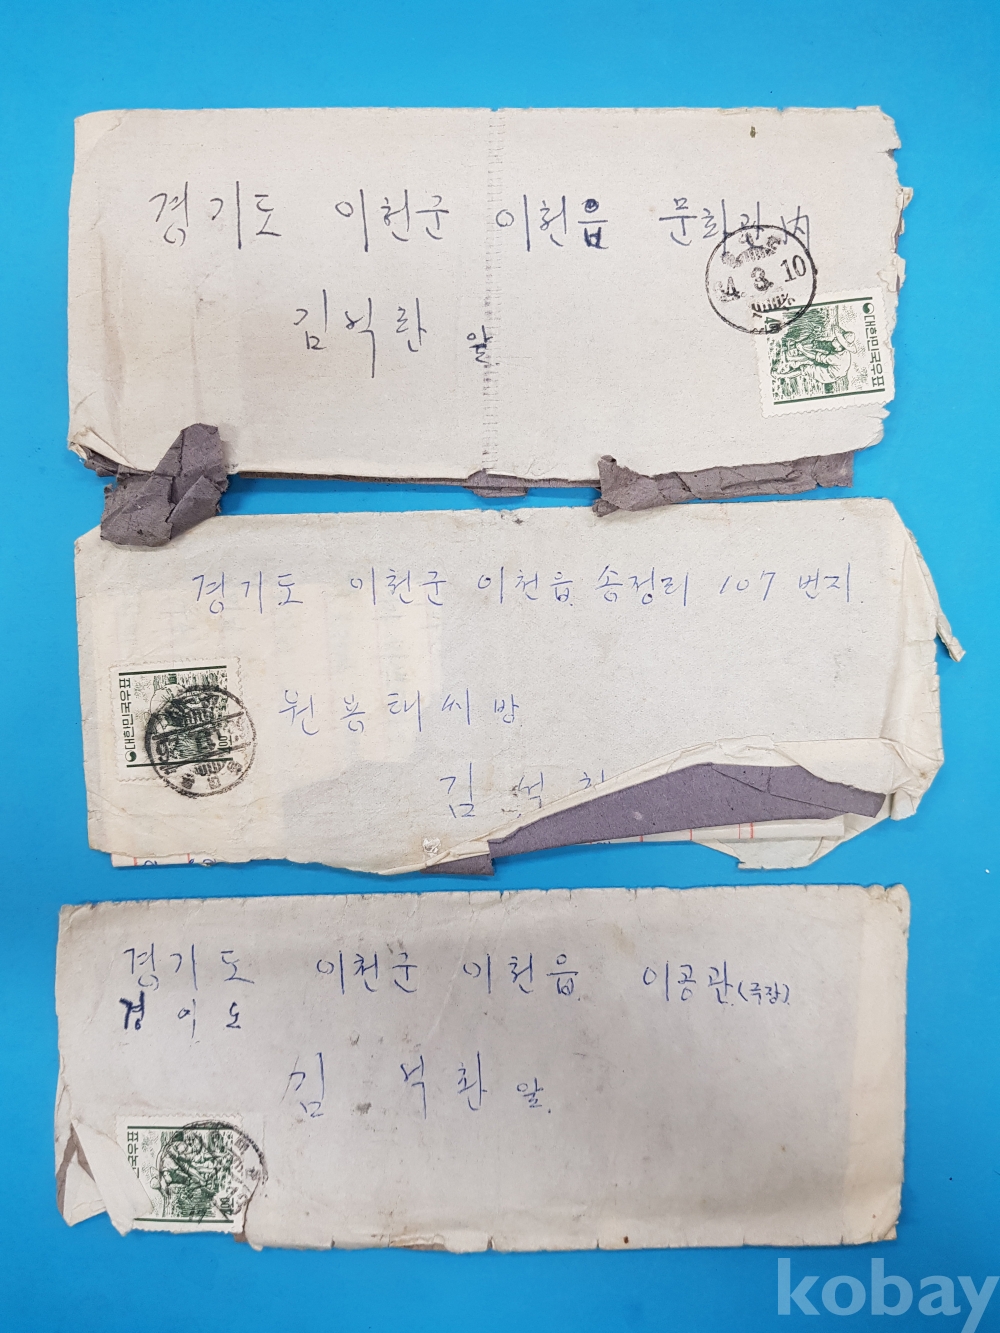 경기도 이천군 이천읍 문화관内
김석환 앞
4. 3. 10
대한민국우표
경기도 이천군 이천읍 송정리 107 번지.
원용태씨방
김석환
대한민국우표
400
경기도 이천군 이천읍 이공관(극장)
경이도
김석환 앞.
민국우표
400
kobay